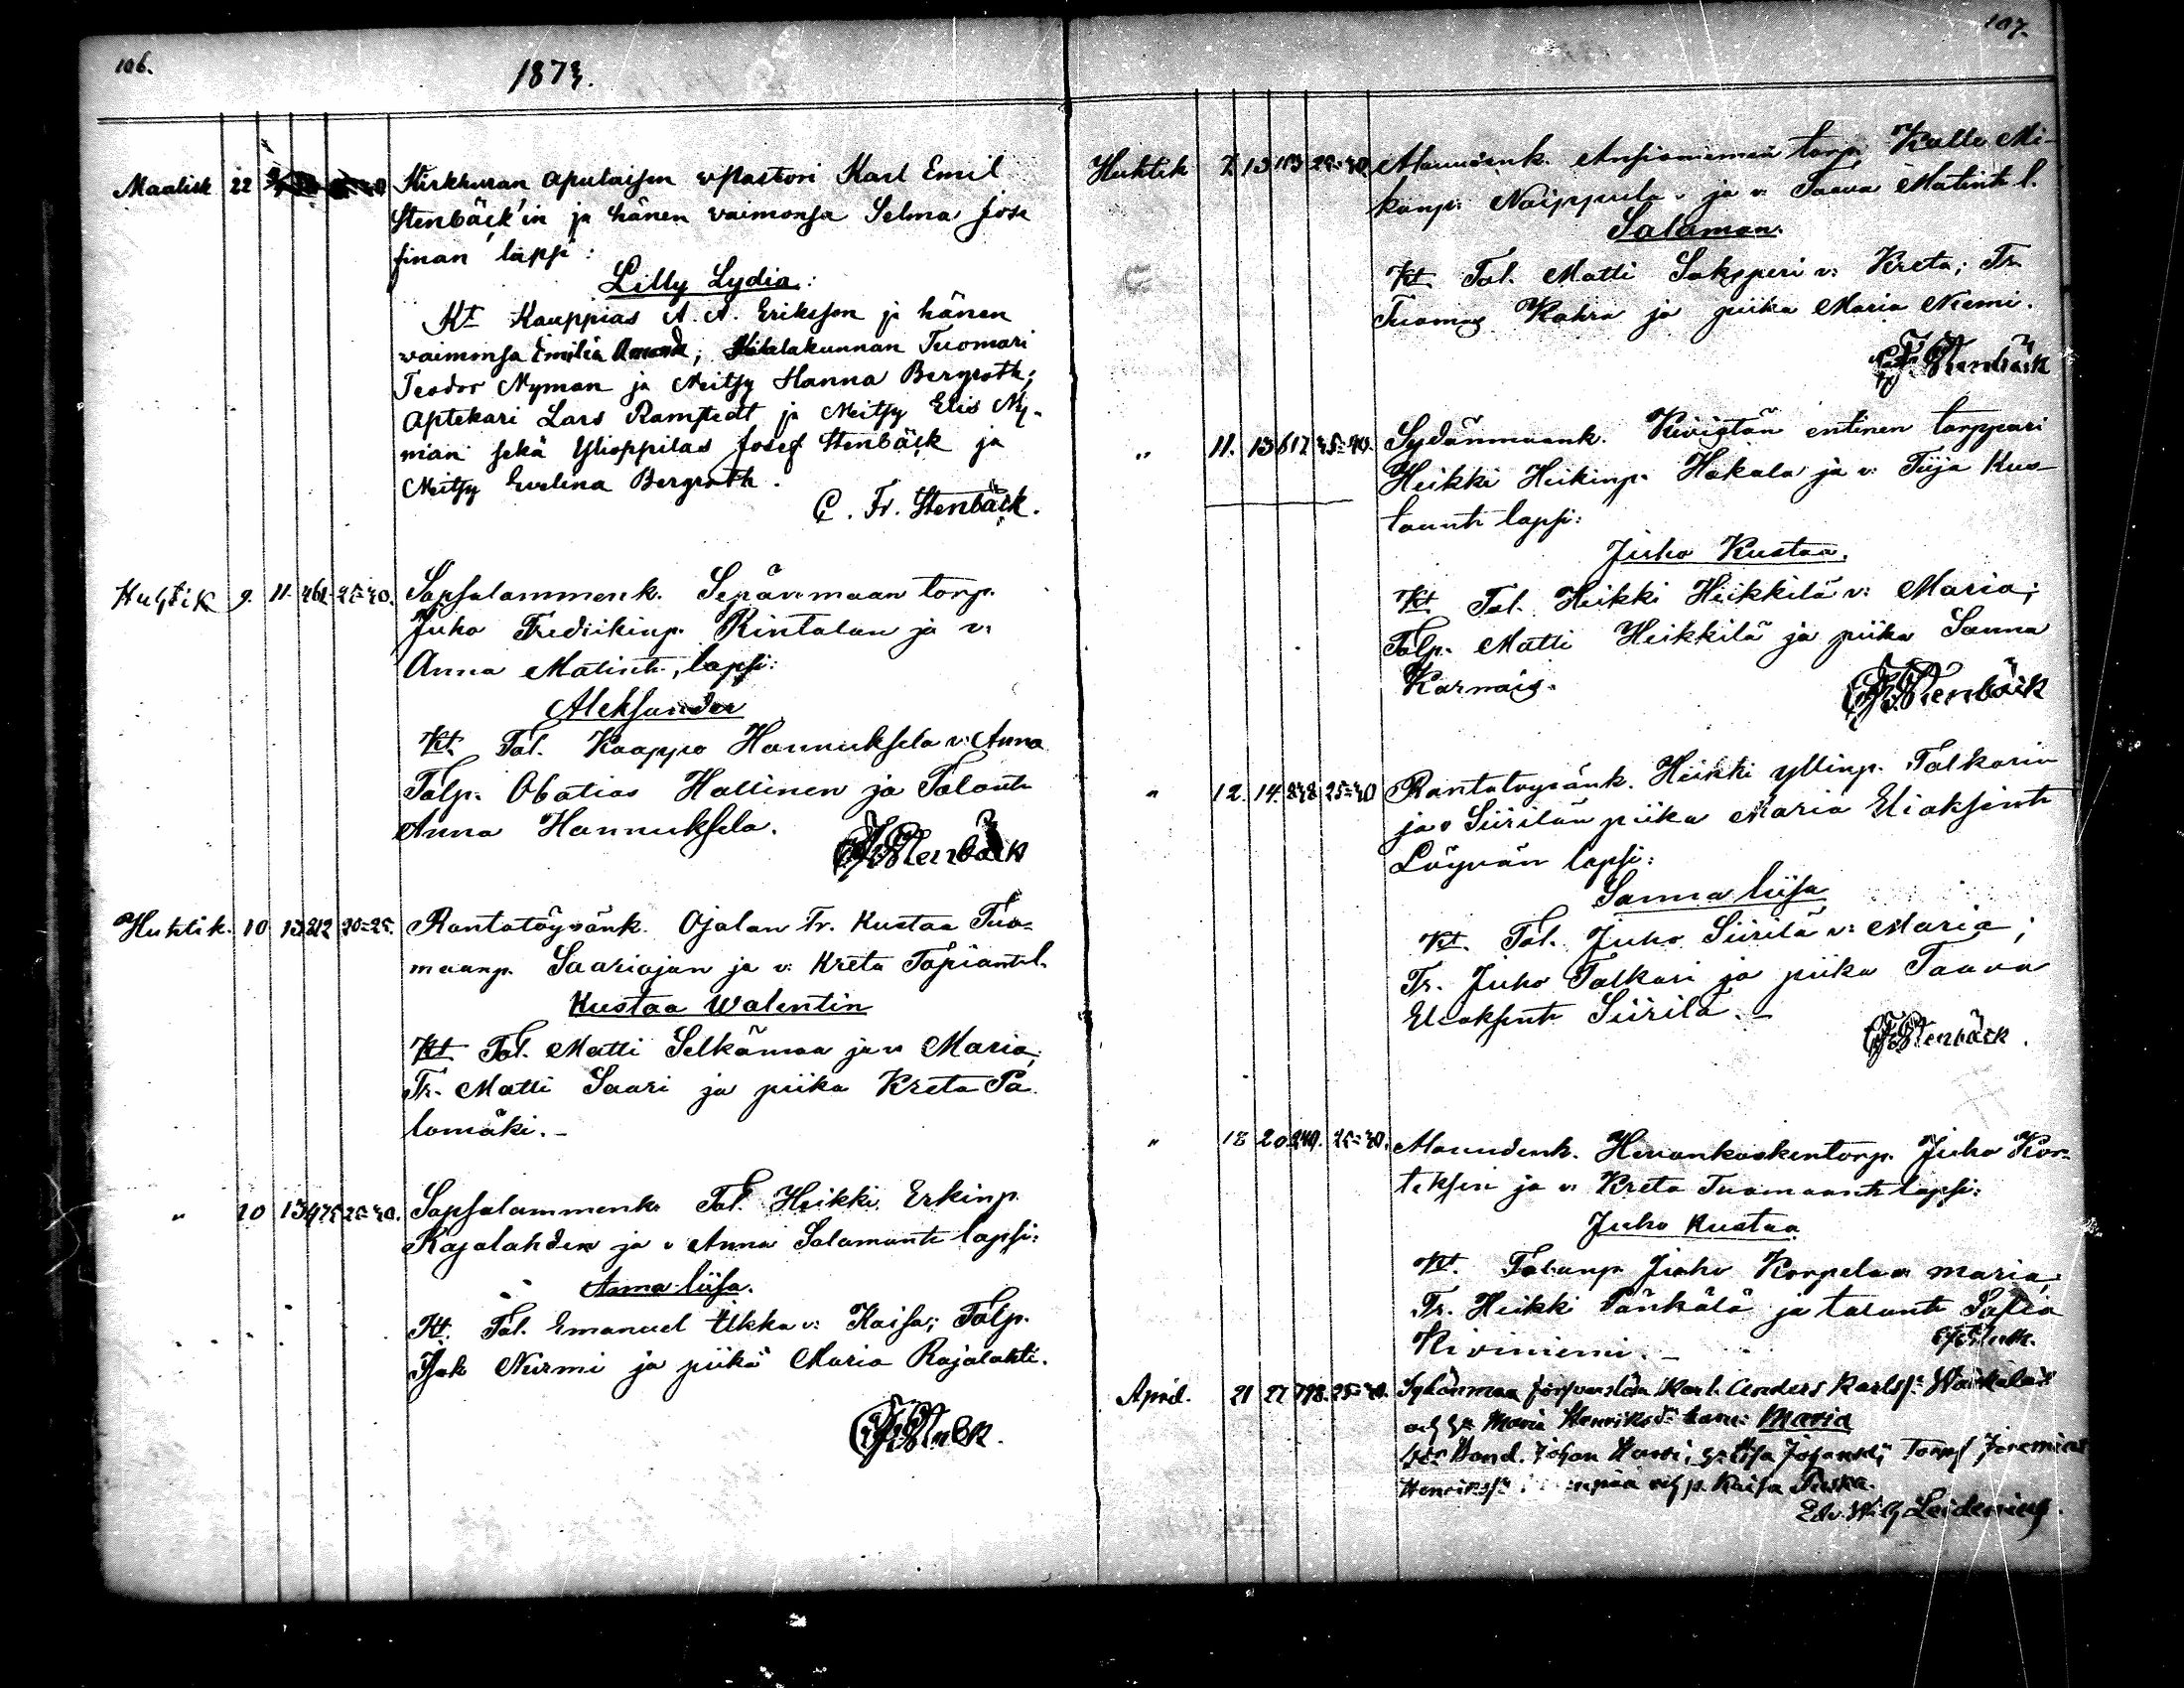 106.
1873.
Maalisk 22 Kirkkerran apulaisen vPastori Karl Emil
Stenbäck'in ja hänen vaimonsa Selma Jose
finan lapsi:
Lilly Lydia:
Kt Kauppias A. A. Eriksson ja hänen
vaimonsa Emilia; Kihlakunnan Tuomari
Teodor Nyman ja Neitsy Hanna Bergroth;
Aptekari Lars Ramstedt ja Neitsy Elis Ny-
man sekä Ylioppilas Josef Stenbäck ja
Neitsy Evelina Bergroth.
C. Fr. Stenbäck.
Huhtik 9. 11. 461. 25=30. Sapsalammenk. Sepänmaan torp.
Juho Fredrikinp. Rintalan ja v:
Anna Matint., lapsi:
Aleksander
Kt. Tal. Kaappo Hannuksela v: Anna
Talp. Obatias Hallinen ja Talont
Anna Hannuksela.
CFStenbäck
Huhtik. 10 13 212 20=25. Rantatöysänk. Ojalan Tr. Kustaa Tuo-
maanp. Saariojan ja v: Kreta Tapiant l.
Kustaa Walentin
Kt Tal. Matti Selkämaa ja v: Maria;
Tr. Matti Saari ja piika Kreta Pa
lomäki.-
" 10 13 475 25=30. Sapsalammenk. Tal. Heikki Erkinp.
Rajalahden ja v Anna Salamont lapsi:
Anna Liisa.
Kt. Tal. Emanuel Ukka v: Kaisa; Talp.
Isak Nurmi ja piika Maria Rajalahti.
CFStbck.
107.
Huhtik 7. 13 Alavudenk. torp. Kalle Mi-
kinp. ja v: Taava Matint l.
Salamon.
Kt. Tal. Matti Saksperi v: Kreta; Tr.
Tuomas Kahra ja piika Maria Niemi.
CFStenbäck
" 11. 13 617 25=30. Sydänmaank. Kivistön entinen torppari
Heikki Heikinp. Hakala ja v: Tiija Kus-
taant lapsi:
Juho Kustaa.
Kt Tal. Heikki Heikkilä v: Maria;
Talp. Matti Heikkilä ja piika Sanna
CFStenbäck
" 12. 14. 848 25=30 Rantatöysänk. Heikki Yllinp. Talkarin
ja v Siirilän piika Maria Eliaksent
Löyvän lapsi:
Sanna Liisa
Kt. Tal. Juho Siirilä v: Maria;
Tr. Juho Talkari ja piika Taava
Eliaksent Siirilä.-
CFStenbäck.
" 18 20 249. 25=30. Alavudenk. Hevonkoskentorp. Juho Kor-
teksen ja v: Kreta Tuomaant lapsi:
Juho Kustaa
Kt. Talonp. Juho Korpela v: Maria;
Tr. Heikki Pänkälä ja talont Sofia
Kiviniemi.-
April. 21 27 798. 25=30. Karl Anders Karlss:
Maria Henriksd: barn: Maria
Bond. Johan Johansd; Torps Jeremias
Henrikss: Kaisa
Edv. Wilh Leidenius.